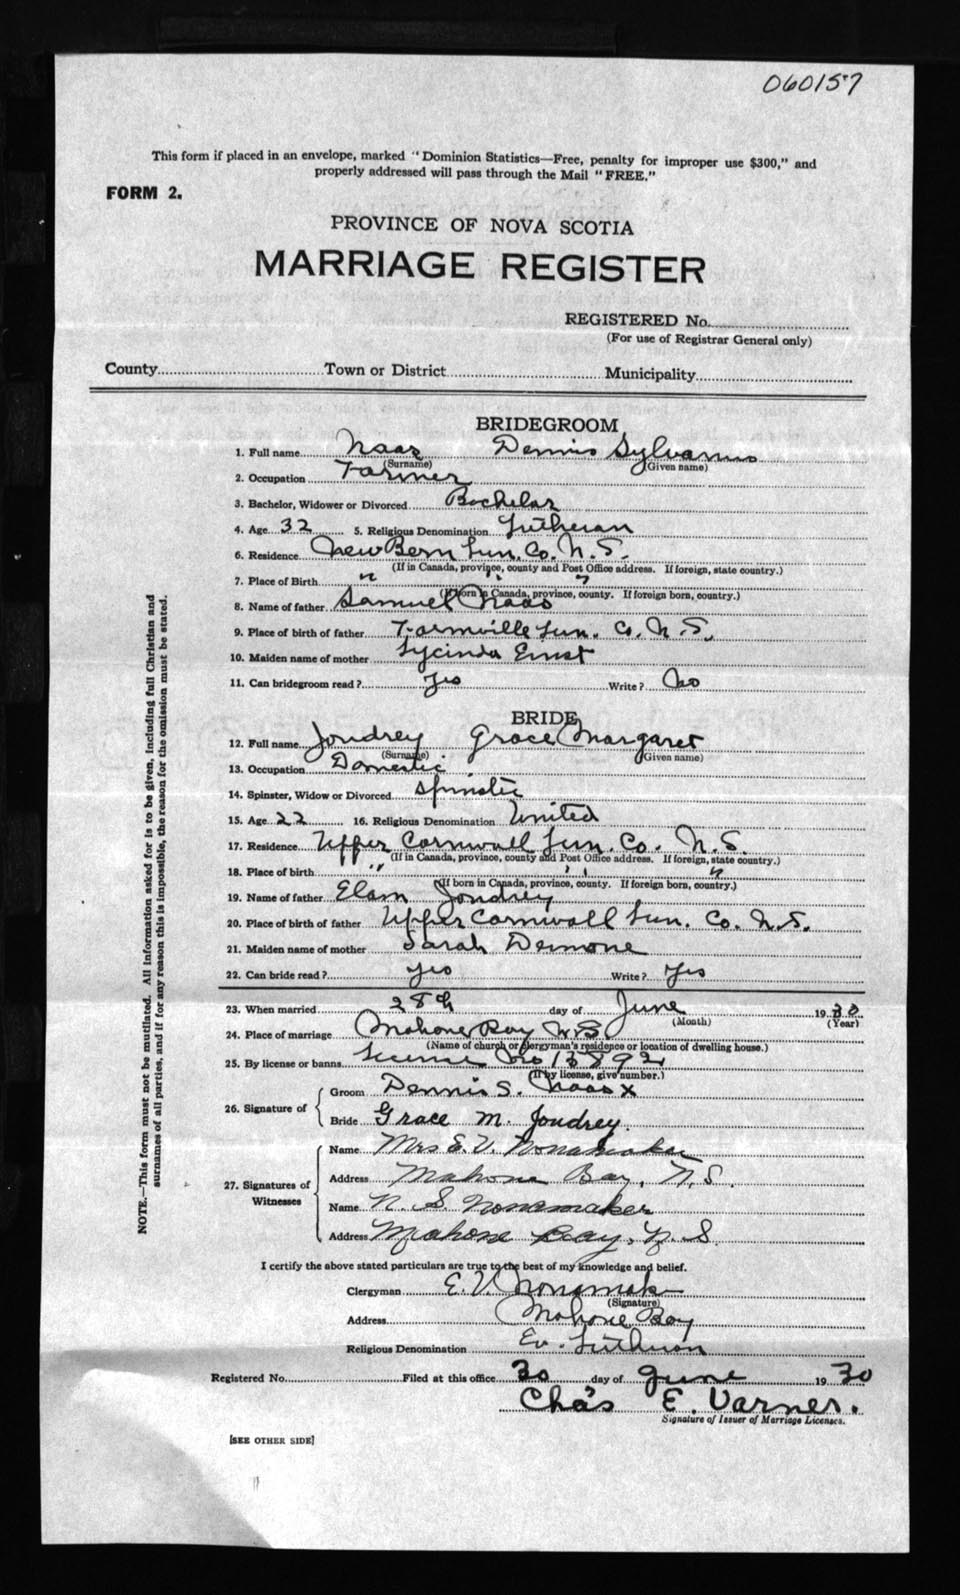 060157
This form if placed in an envelope, marked "Dominion Statistics—Free, penalty for improper use $300," and
properly addressed will pass through the Mail "FREE."
FORM 2.
PROVINCE OF NOVA SCOTIA
MARRIAGE REGISTER
REGISTERED No.
(For use of Registrar General only)
County Town or District Municipality
BRIDEGROOM
1. Full name Naas Dennis Sylvanus
(Surname) (Given name)
2. Occupation Farmer
3. Bachelor, Widower or Divorced Bachelor
4. Age 32 5. Religious Denomination Lutheran
6. Residence New Bern Lun. Co. N.S.
(If in Canada, province, county and Post Office address. If foreign, state country.)
7. Place of Birth " " "
(If born in Canada, province, county. If foreign born, country.)
8. Name of father Samuel Naas
9. Place of birth of father Farmville Lun. Co. N.S.
10. Maiden name of mother Lycinda Ernst
11. Can bridegroom read? Yes Write? No
BRIDE
12. Full name Joudrey Grace Margaret
(Surname) (Given name)
13. Occupation Domestic
14. Spinster, Widow or Divorced Spinster
15. Age 22 16. Religious Denomination United
17. Residence Upper Cornwall Lun. Co. N.S.
(If in Canada, province, county and Post Office address. If foreign, state country.)
18. Place of birth " " "
(If born in Canada, province, county. If foreign born, country.)
19. Name of father Elam Joudrey
20. Place of birth of father Upper Cornwall Lun. Co. N.S.
21. Maiden name of mother Sarah Demone
22. Can bride read? Yes Write? Yes
23. When married 28th day of June 1930
(Month) (Year)
24. Place of marriage Mahone Bay N.S.
(Name of church or clergyman's residence or location of dwelling house.)
25. By license or banns License No 13892
(If by license, give number.)
26. Signature of
Groom Dennis S. Naas x
Bride Grace M. Joudrey.
27. Signatures of Witnesses
Name Mrs E. V. Nonamaker
Address Mahone Bay, N.S.
Name N. S. Nonamaker
Address Mahone Bay, N.S.
I certify the above stated particulars are true to the best of my knowledge and belief.
Clergyman E. V. Nonamaker
(Signature)
Address Mahone Bay
Religious Denomination Ev. Lutheran
Registered No. Filed at this office 30 day of June 1930
Chas E. Varner.
Signature of Issuer of Marriage Licenses.
[SEE OTHER SIDE]
NOTE.—This form must not be mutilated. All information asked for is to be given, including full Christian and
surnames of all parties, and if for any reason this is impossible, the reason for the omission must be stated.